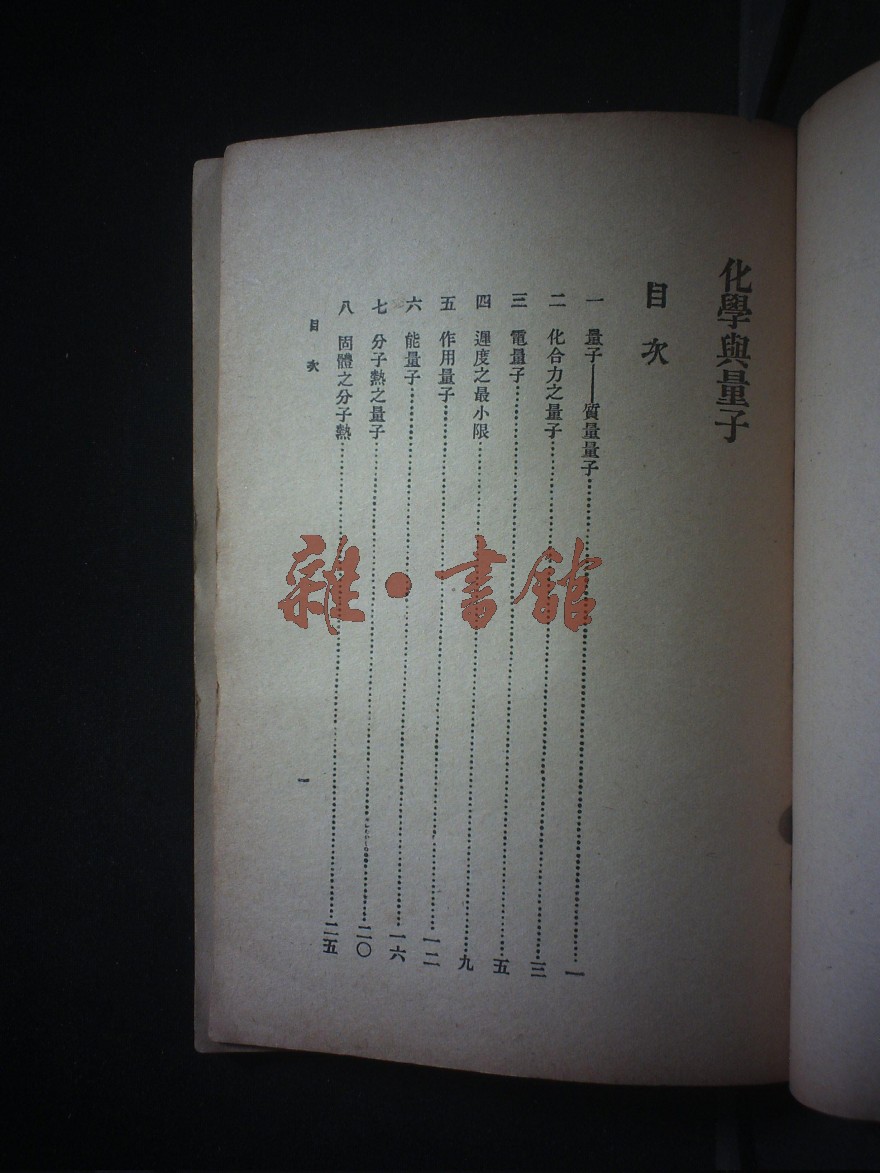 化學與量子
目次
一 量子——質量量子……一
二 化合力之量子……三
三 電量子……五
四 遲度之最小限……九
五 作用量子……一二
六 能量子……一六
七 分子熱之量子……二〇
八 固體之分子熱……二五
目次
一
雜·書館